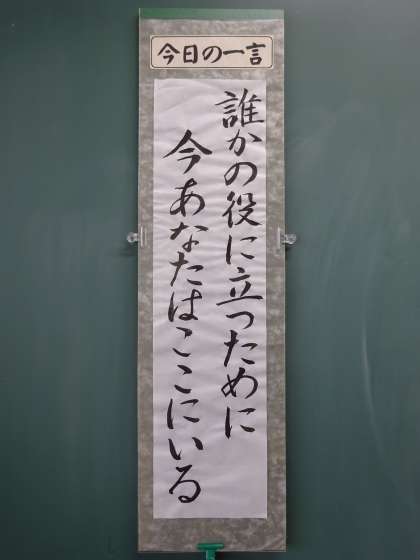 今日の一言
誰かの役に立つために
今あなたはここにいる